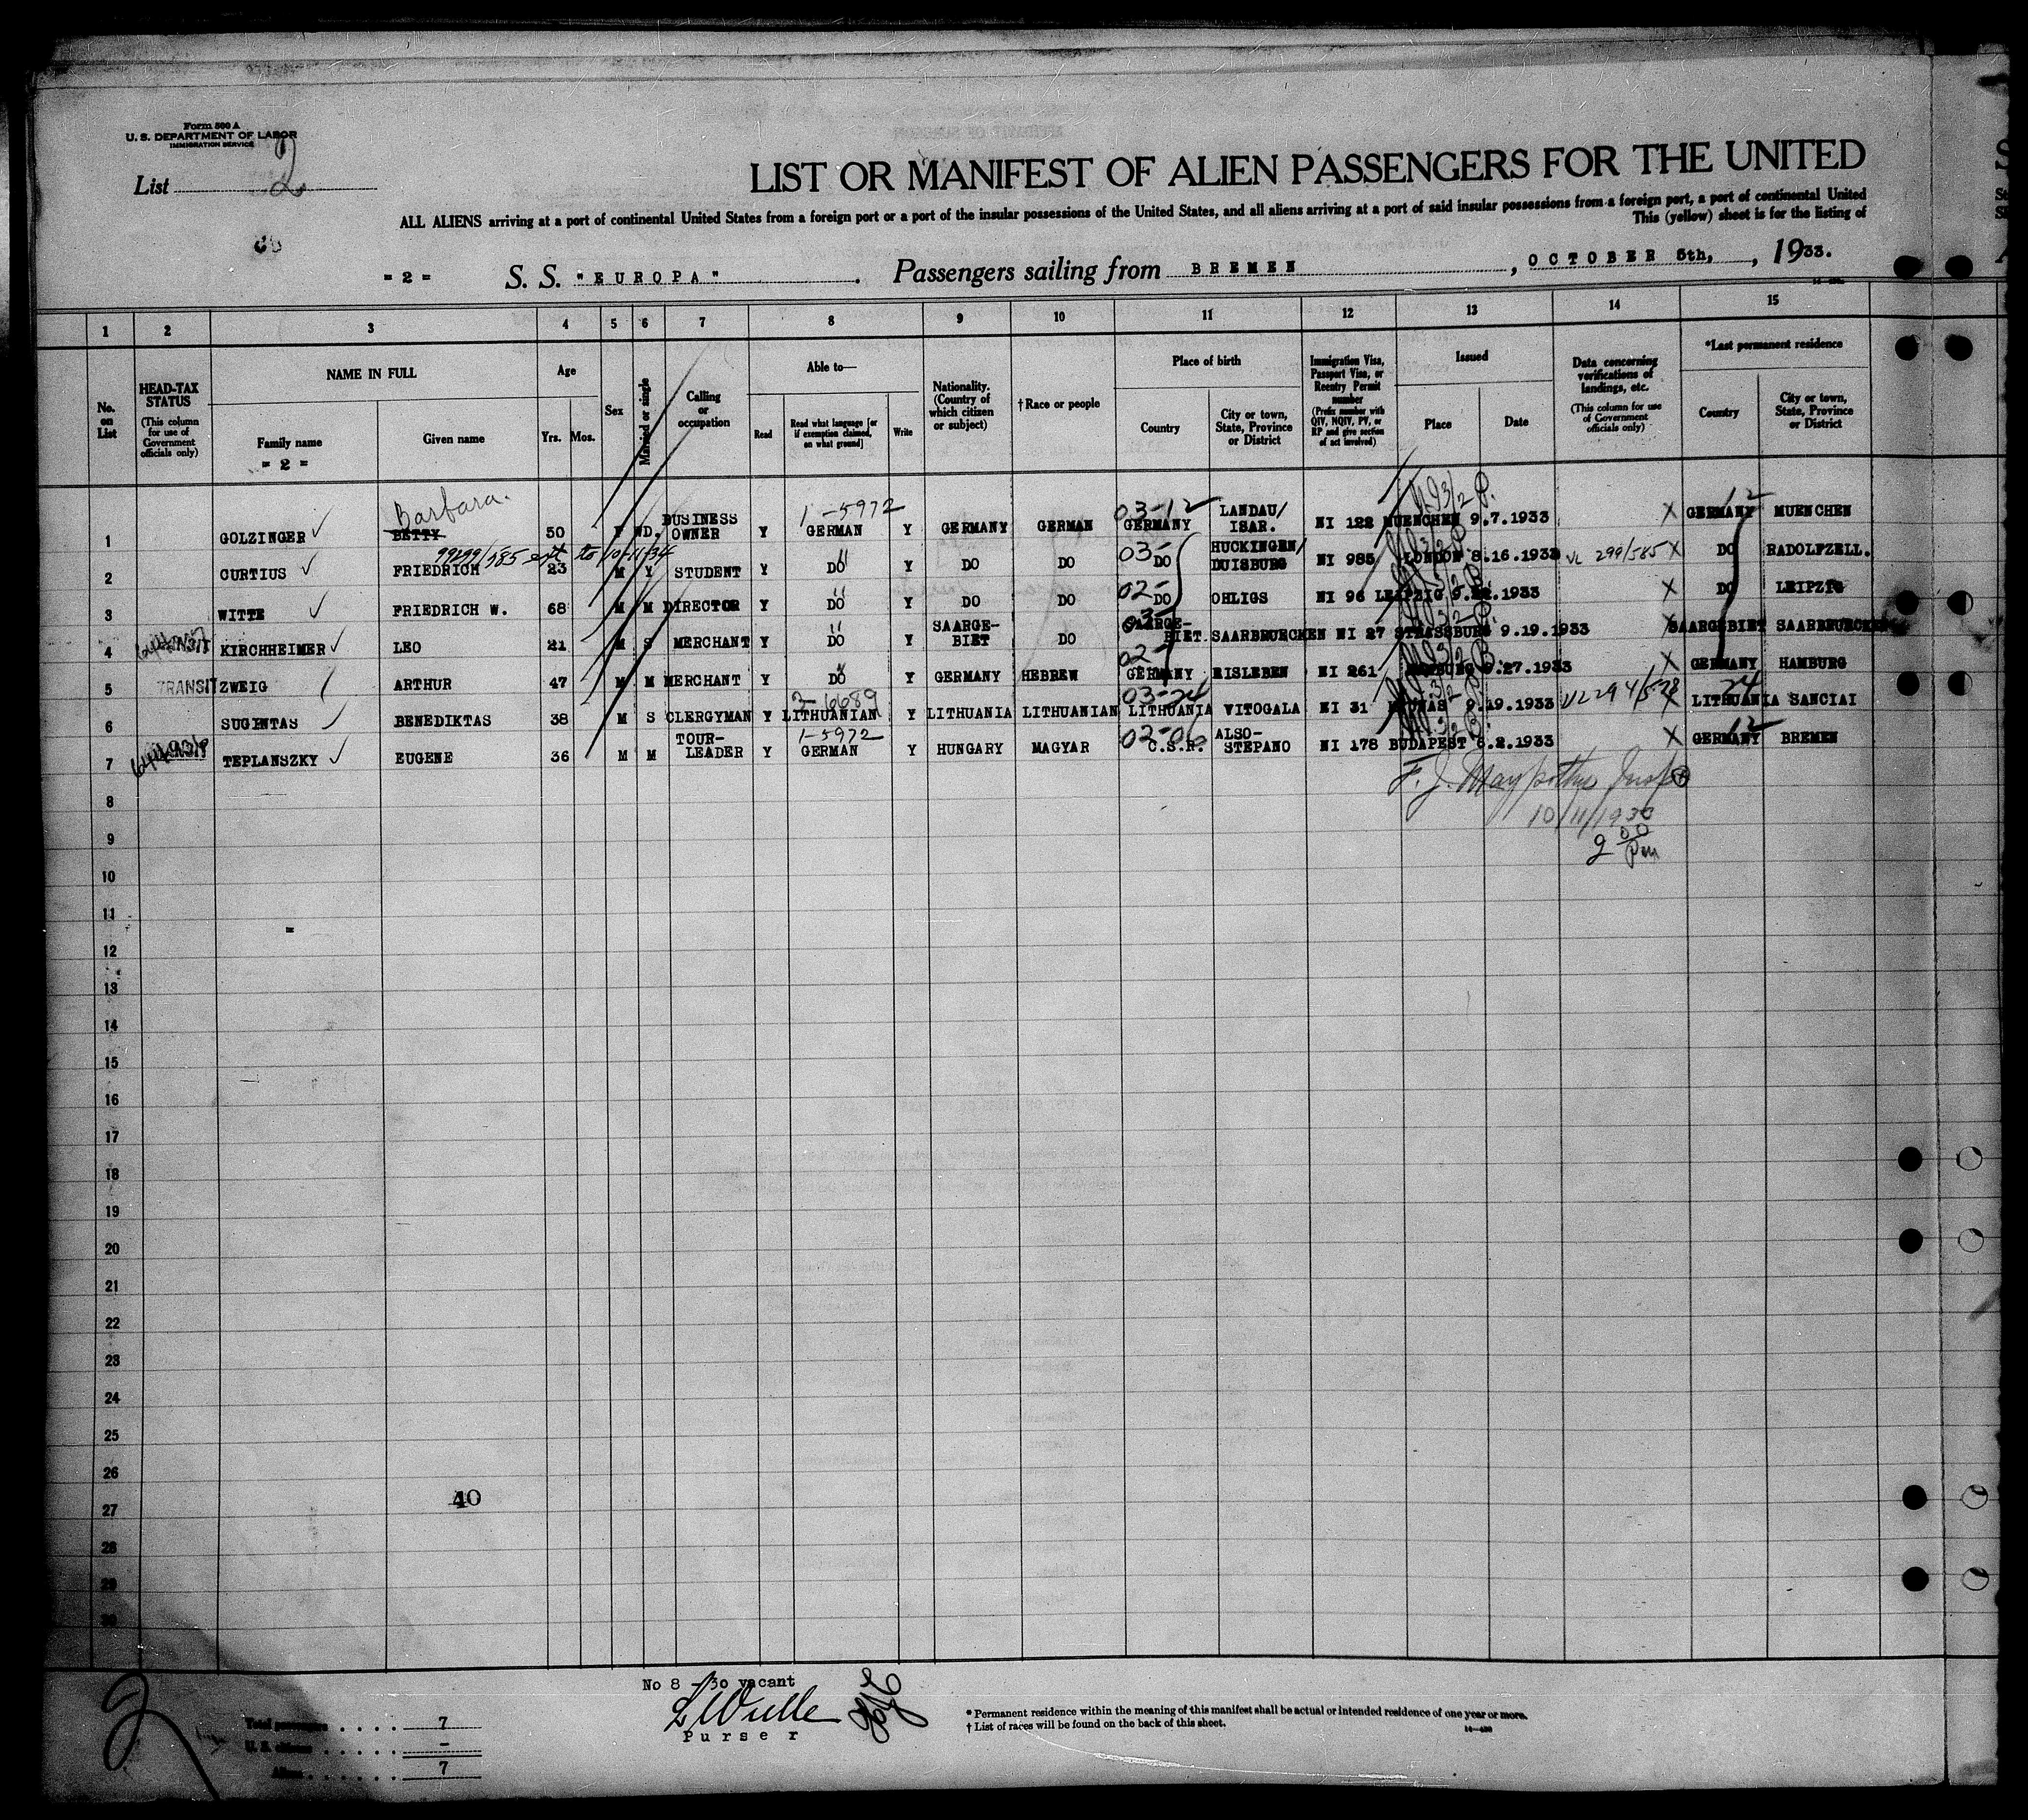 Form 500 A
U. S. DEPARTMENT OF LABOR
IMMIGRATION SERVICE
List 2
LIST OR MANIFEST OF ALIEN PASSENGERS FOR THE UNITED
ALL ALIENS arriving at a port of continental United States from a foreign port or a port of the insular possessions of the United States, and all aliens arriving at a port of said insular possessions from a foreign port, a port of continental United
This (yellow) sheet is for the listing of
= 2 = S. S. "EUROPA" Passengers sailing from BREMEN, OCTOBER 5th, , 1933.
1 2 3 4 5 6 7 8 9 10 11 12 13 14 15
No. on List
HEAD-TAX STATUS
(This column for use of Government officials only)
NAME IN FULL
Family name
= 2 =
Given name
Age
Yrs. Mos.
Sex
Married or single
Calling or occupation
Able to—
Read
Read what language [or if exemption claimed, on what ground]
Write
Nationality. (Country of which citizen or subject)
†Race or people
Place of birth
Country
City or town, State, Province or District
Immigration Visa, Passport Visa, or Reentry Permit number
(Prefix number with QIV, NQIV, PV, or RP and give section of act involved)
Issued
Place
Date
Data concerning verifications of landings, etc.
(This column for use of Government officials only)
*Last permanent residence
Country
City or town, State, Province or District
Barbara. 1-5972 03-12 12
1 GOLZINGER BETTY 50 F WD. BUSINESS OWNER Y GERMAN Y GERMANY GERMAN GERMANY LANDAU/ ISAR. NI 122 MUENCHEN 9.7.1933 X GERMANY MUENCHEN
99299/585 ext to 10-11-34 03-
2 CURTIUS FRIEDRICH 23 M Y STUDENT Y DO Y DO DO DO HUCKINGEN/ DUISBURG NI 985 LONDON 8.16.1933 VL 299/585 X DO RADOLFZELL.
02-
3 WITTE FRIEDRICH W. 68 M M DIRECTOR Y DO Y DO DO DO OHLIGS NI 96 LEIPZIG 1933 X DO LEIPZIG
03-
4 KIRCHHEIMER LEO 21 M S MERCHANT Y DO Y SAARGE- BIET DO SAARGE- BIET. SAARBRUECKEN NI 27 STRASSBURG 9.19.1933 SAARGEBIET SAARBRUECKEN
02-
5 TRANSIT ZWEIG ARTHUR 47 M M MERCHANT Y DO Y GERMANY HEBREW GERMANY EISLEBEN NI 261 9.27.1933 X GERMANY HAMBURG
2-6689 03-24 24
6 SUGINTAS BENEDIKTAS 38 M S CLERGYMAN Y LITHUANIAN Y LITHUANIA LITHUANIAN LITHUANIA VITOGALA NI 31 9.19.1933 X LITHUANIA SANCIAI
1-5972 02-06 12
7 TEPLANSZKY EUGENE 36 M M TOUR- LEADER Y GERMAN Y HUNGARY MAGYAR C.S.R. ALSO- STEPANO NI 178 BUDAPEST 8.2.1933 X GERMANY BREMEN
8
9
2 00 Pm
10
11
12
13
14
15
16
17
18
19
20
21
22
23
24
25
26
40
27
28
29
30
No 8 - 30 vacant
Purser
Total passengers . . . . 7
U. S. citizens . . . . -
Aliens . . . . . . 7
* Permanent residence within the meaning of this manifest shall be actual or intended residence of one year or more.
† List of races will be found on the back of this sheet.